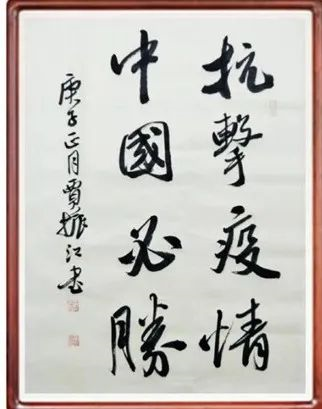 抗擊疫情
中國必勝
庚子正月賈振江書